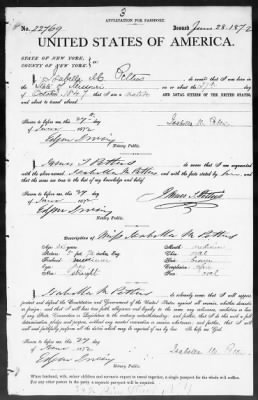 3
APPLICATION FOR PASSPORT.
No. 22769 Issued June 28, 1872
UNITED STATES OF AMERICA.
STATE OF NEW YORK,
COUNTY OF NEW YORK.
I, Isabella M. Pettus do swear that I was born in
the State of Missouri on or about the 27th day
of October 1847; that I am a native AND LOYAL CITIZEN OF THE UNITED STATES,
and about to travel abroad.
Sworn to before me, this 27th day
of June 1872
Notary Public.
James T. Pettus do swear that I am acquainted
with the above-named Isabella M. Pettus and with the facts stated by
to the best of my knowledge and belief.
Sworn to before me, this 27 day
of June 1872
Notary Public.
Description of Miss Isabella M. Pettus
Age,
Stature, 5 feet inches, Eng.
Forehead, medium
Eyes,
Nose, straight
Mouth, medium
Chin, oval
Hair, brown
Complexion,
Face, oval
I, Isabella M. Pettus do solemnly swear that I will support,
protect and defend the Constitution and Government of the United States against all enemies, whether domestic
or foreign; and that I will bear true faith, allegiance and loyalty to the same, any ordinance, resolution or law
of any State, Convention or Legislature to the contrary notwithstanding; and further, that I do this with a full
determination, pledge and purpose, without any mental reservation or evasion whatsoever; and further, that I will
well and faithfully perform all the duties which may be required of me by law. So help me God.
Sworn to before me, this 27 day
of June 1872
Notary Public.
Where husband, wife, minor children and servants expect to travel together, a single passport for the whole will suffice.
For any other person in the party, a separate passport will be required.